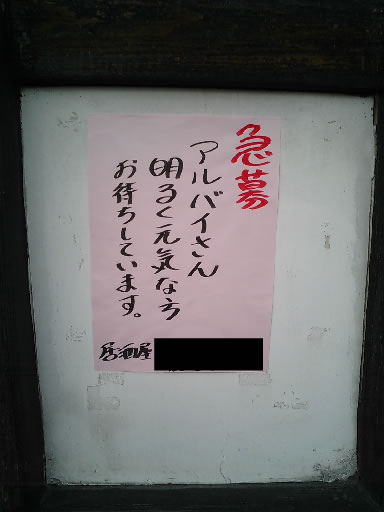 急募
アルバイさん
明るく元気な方
お待ちしています。
居酒屋